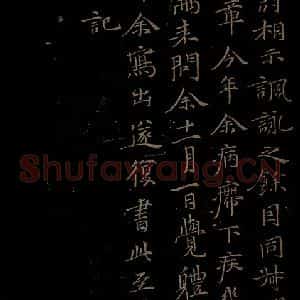 詩相示諷詠之餘目同
章今年余病瘍下疾
來問余十一月一日覺體
余寫出遂復書此至
記
Shufawang.CN